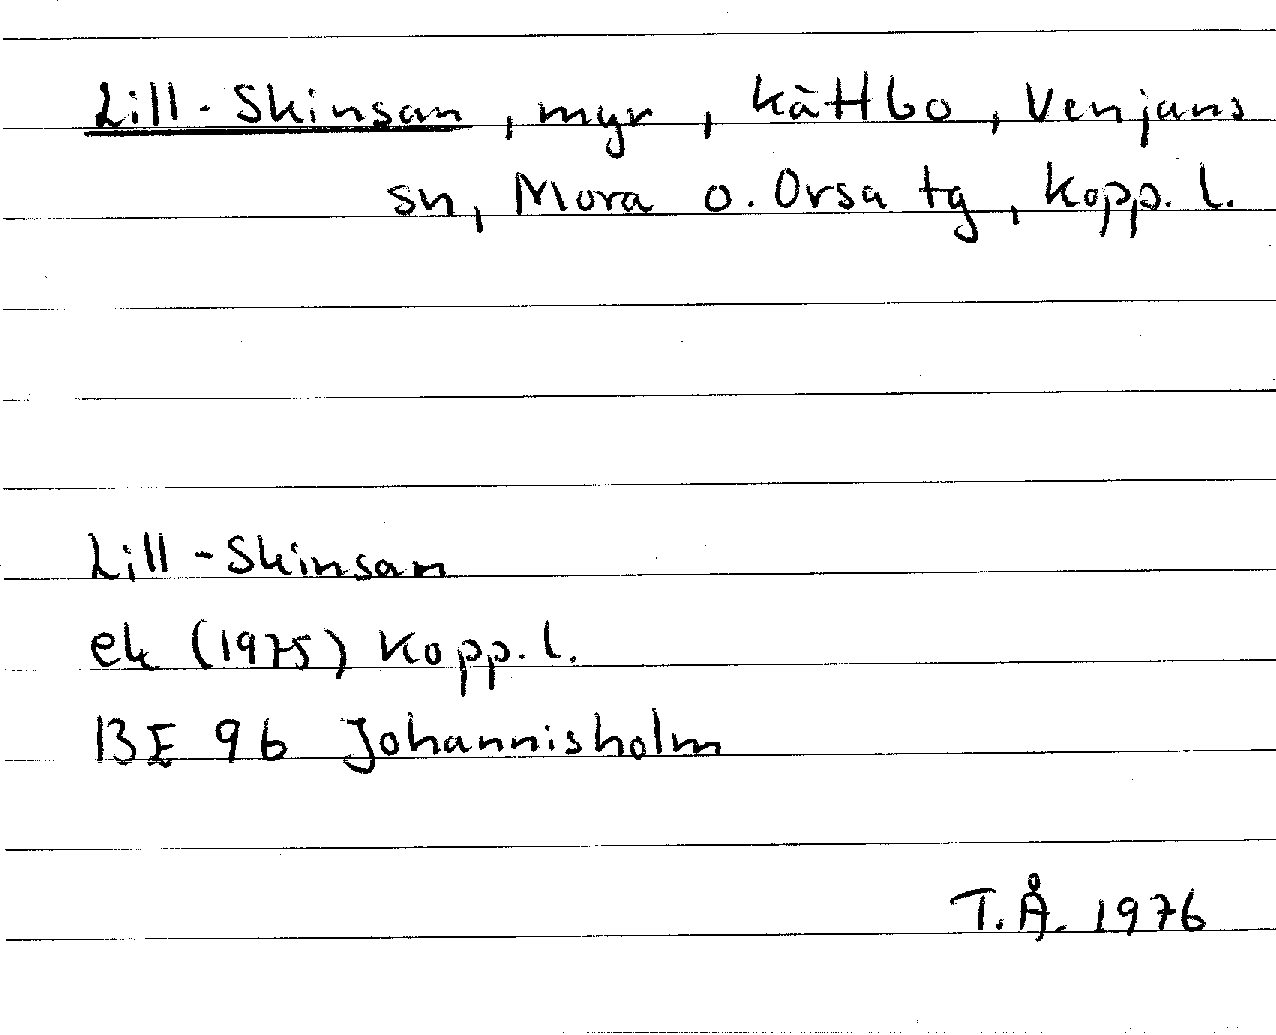 Lill-Skinsan, myr, Kättbo, Venjans
sn, Mora o. Orsa tg, Kopp. l.
Lill-Skinsan
ek (1975) Kopp. l.
BE 96 Johannisholm
T.Å. 1976